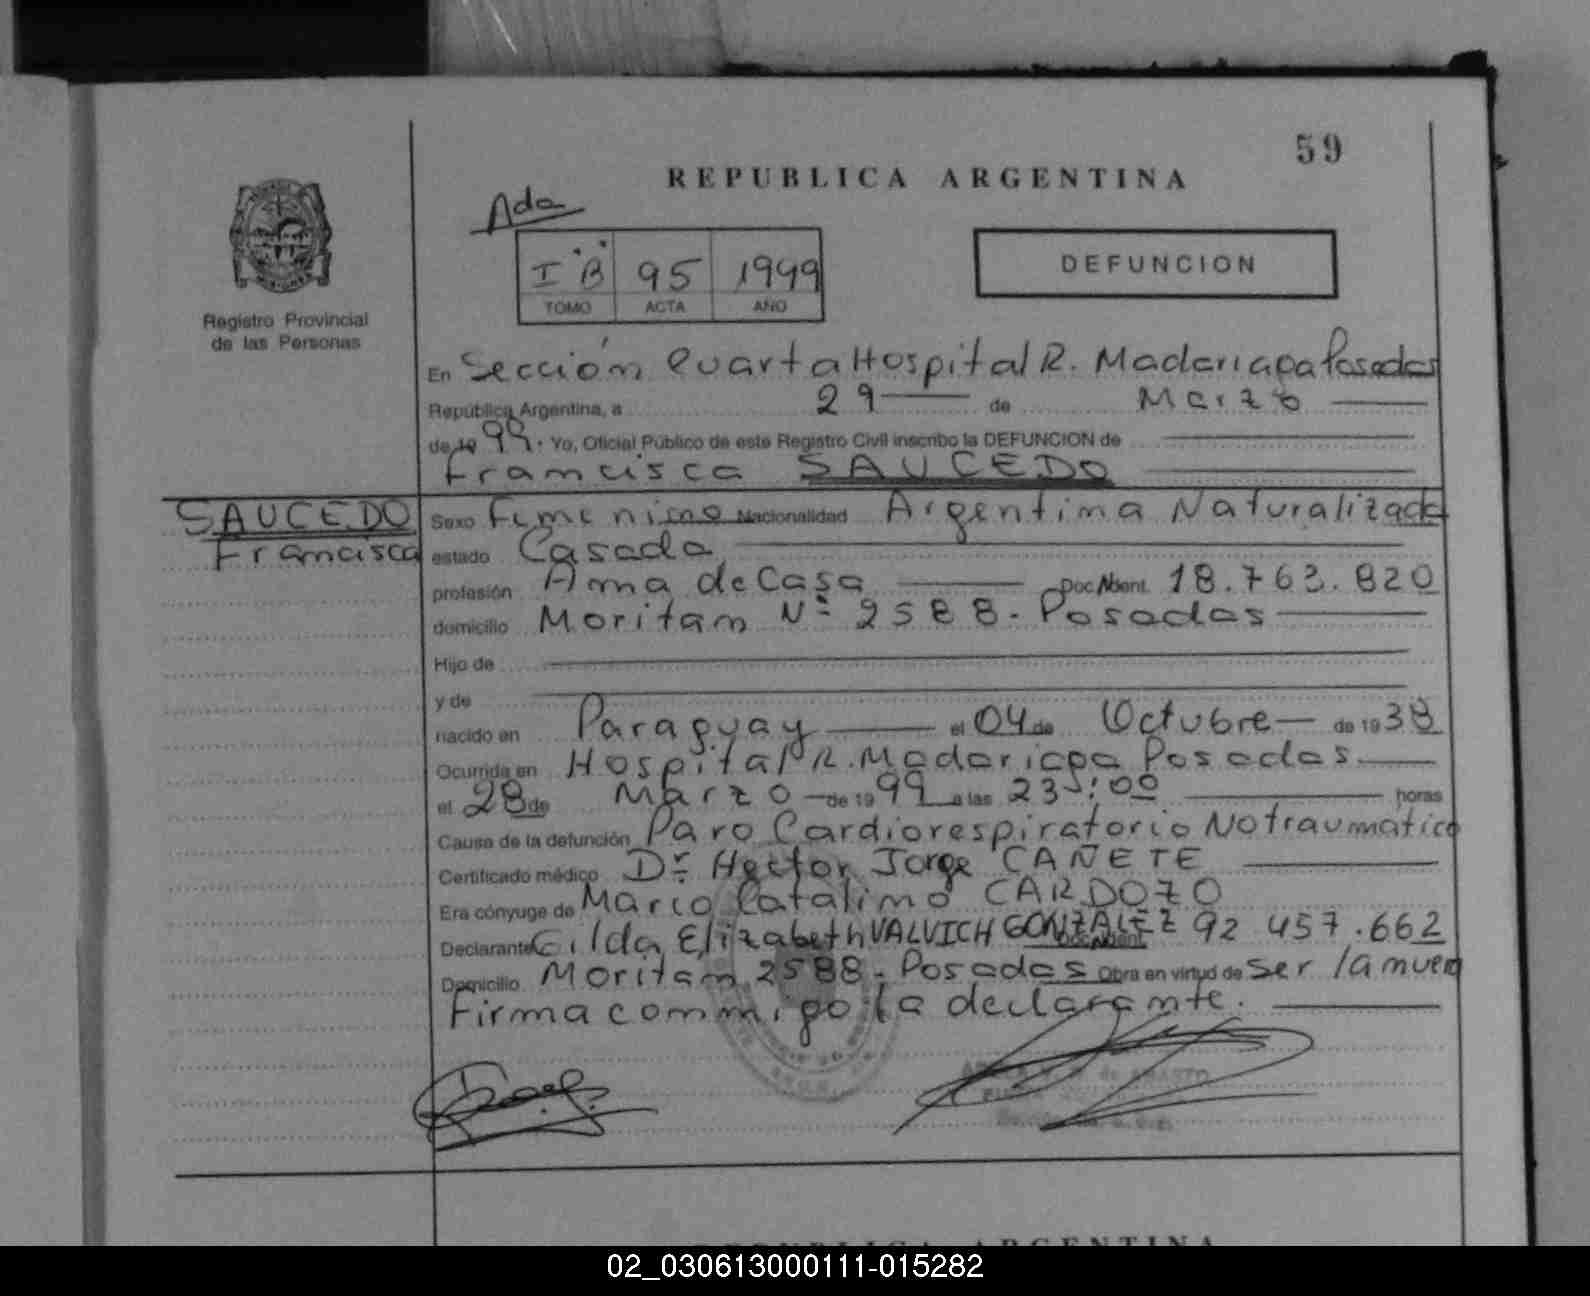 59
REPUBLICA ARGENTINA
Ada
I "B" 95 1999
TOMO ACTA AÑO
DEFUNCION
Registro Provincial
de las Personas
En Sección Cuarta Hospital R. Madariaga Posadas
República Argentina, a 29 de Marzo
de 19 99. Yo, Oficial Público de este Registro Civil inscribo la DEFUNCION de
Francisca SAUCEDO
SAUCEDO
Francisca
Sexo Femenino Nacionalidad Argentina Naturalizada
estado Casada
profesión Ama de Casa Doc. Ident. 18.763.820
domicilio Moritan Nº 2588 - Posadas
Hijo de
y de
nacido en Paraguay el 04 de Octubre de 19 38
Ocurrida en Hospital R. Madariaga Posadas
el 28 de Marzo de 19 99 a las 23:00 horas
Causa de la defunción Paro Cardiorespiratorio No traumatico
Certificado médico Dr. Hector Jorge CAÑETE
Era cónyuge de Mario Catalino CARDOZO
Declarante Gilda Elizabeth VALVICH GONZALEZ Doc. Ident. 92 457.662
Domicilio Moritan 2588 - Posadas Obra en virtud de Ser la nuera
Firma conmigo la declarante.
de AMARTO
REPUBLICA ARGENTINA
02_030613000111-015282